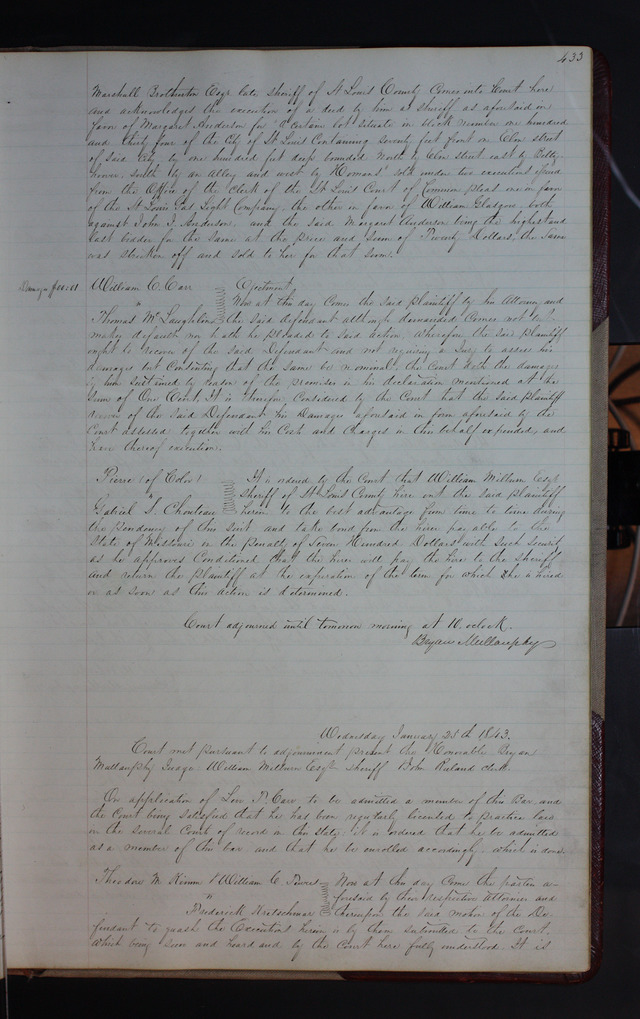 433
Marshall Brotherton Esqr late sheriff of St Louis County Comes into Court here
and acknowledges the execution of a deed by him as sheriff as aforesaid in
favor of Margaret Anderson for "a certain lot situate in block number one hundred
and thirty four of the City of St Louis Containing seventy feet front on Elm street
of said City by one hundred feet deep bounded North by Elm street east by
house, south by an alley and west by sold under two executions issued
from the Office of the Clerk of the St Louis Court of Common pleas one in favor
of the St Louis Gas Light Company, the other in favor of William Glasgow both
against John J. Anderson, and the said Margaret Anderson being the highest and
last bidder for the same at the price and sum of Twenty Dollars, the same
was stricken off and sold to her for that sum.
Damages $00.01 William C. Carr Ejectment,
" Now at this day Comes the said plaintiff by his Attorney and
Thomas McLaughlin the said defendant although demanded Comes not but
makes default nor hath he pleaded to said action, wherefore the said plaintiff
ought to recover of the said Defendant and not requiring a Jury to assess his
damages but Consenting that the same be nominal, the Court doth the damages
by him sustained by reason of the premises in his declaration mentioned at the
sum of One Cent. It is therefore Considered by the Court that the said plaintiff
recover of the said Defendant his Damages aforesaid in form aforesaid by the
Court assessed together with his Costs and Charges in this behalf expended, and
have thereof execution.
Pierre (of Color) It is ordered by the Court that William Milburn Esqr
" sheriff of St Louis County hire out the said plaintiff
Gabriel S. Chouteau herein to the best advantage from time to time during
the pendency of this suit and take bond from the hirer payable to the
State of Missouri in the penalty of Seven Hundred Dollars with such security
as he approves Conditioned that the hirer will pay the hire to the sheriff
and return the plaintiff at the expiration of the term for which he is hired
or as soon as this action is determined.
Court adjourned until tomorrow morning at 10. oclock.
Bryan Mullanphy
Wednesday January 25th 1843.
Court met pursuant to adjournment present the Honorable Bryan
Mullanphy Judge William Milburn Esqr sheriff John Ruland clerk.
On application of P. Carr to be admitted a member of this Bar, and
the Court being satisfied that he has been regularly licensed to practice law
in the several Courts of record in this state, It is ordered that he be admitted
as a member of this bar, and that he be enrolled accordingly. which is done.
Theodore W. & William C. Now at this day Come the parties a-
" foresaid by their respective Attornies and
Frederick Kretschmar thereupon the said motion of the De-
fendant to quash the Executions herein is by them submitted to the Court,
which being seen and heard and by the Court here fully understood. It is